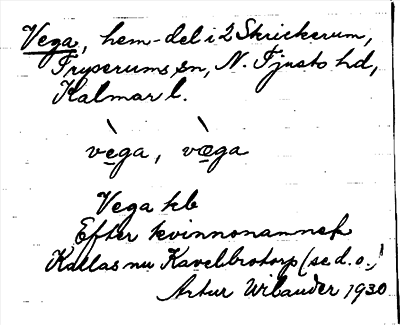 Vega, hem-del i 2 Skrickerum,
Tryserums sn, N. Tjusts hd,
Kalmar l.
vèga, vœ̀ga
Vega kb
Efter kvinnonamnet
Kallas nu Kavelbrotorp (se d. o.)
Artur Wilander 1930